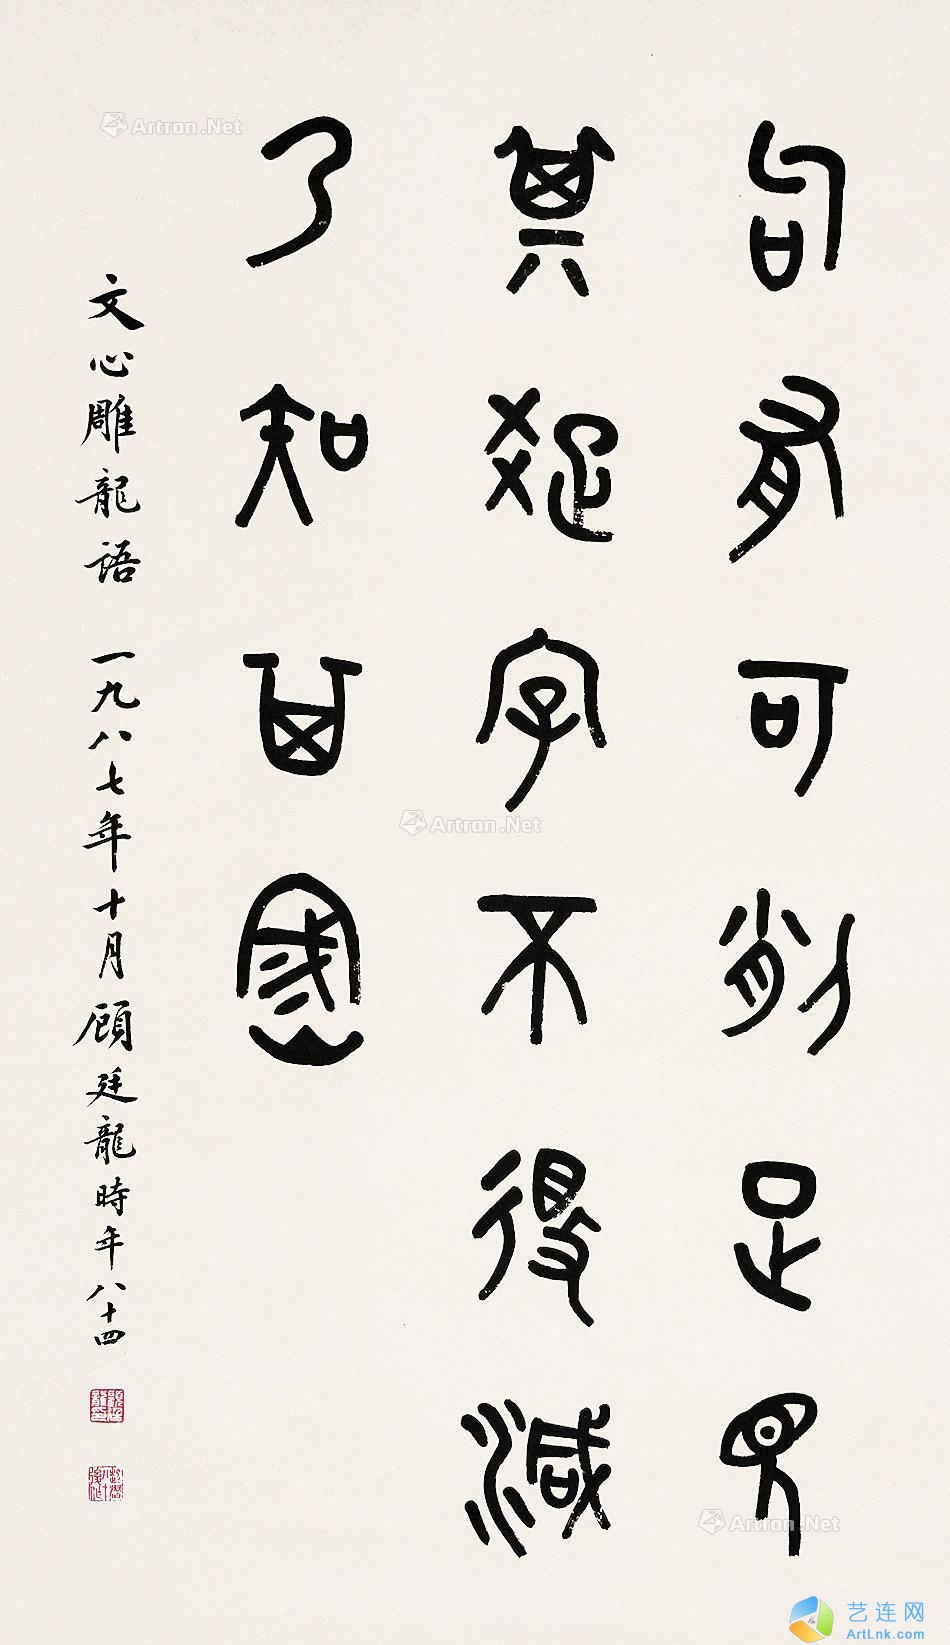 句有可削足見
其疏字不得減
乃知其密
文心雕龍語 一九八七年十月顧廷龍時年八十四
Artron.Net
Artron.Net
Artron.Net
艺连网
ArtLnk.com